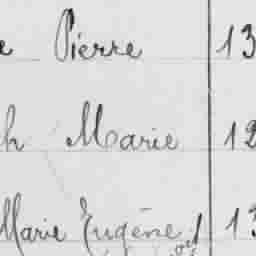 e Pierre 13
h Marie 12
Marie Eugène 13